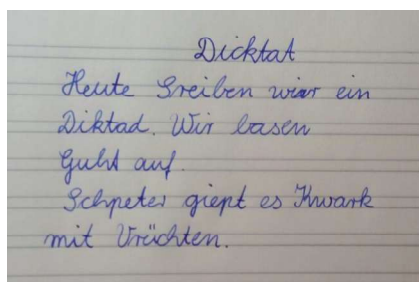 Dicktat
Heute Sreiben wir ein
Diktad. Wir basen
Guht auf.
Schpeter giept es Kwark
mit Vrüchten.